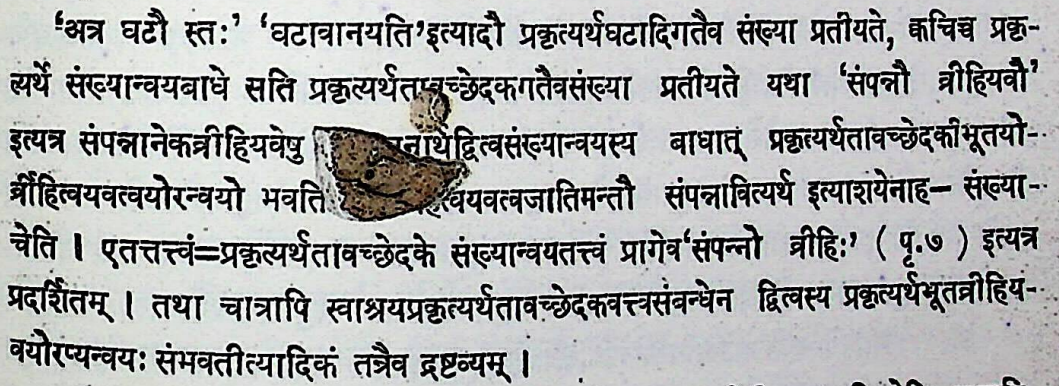 ‘अत्र घटौ स्तः’ ‘घटावानयति’इत्यादौ प्रकृत्यर्थघटादिगतैव संख्या प्रतीयते, क्वचिच्च प्रकृ-
त्यर्थे संख्यान्वयबाधे सति प्रकृत्यर्थतावच्छेदकगतैवसंख्या प्रतीयते यथा ‘संपन्नौ व्रीहियवौ’
इत्यत्र संपन्नानेकव्रीहियवेषु बाधात् प्रकृत्यर्थतावच्छेदकीभूतयो-
र्व्रीहित्वयवत्वयोरन्वयो भवति संपन्नावित्यर्थ इत्याशयेनाह– संख्या-
चेति । एतत्तत्त्वं=प्रकृत्यर्थतावच्छेदके संख्यान्वयतत्त्वं प्रागेव‘संपन्नो व्रीहिः’ ( पृ.७ ) इत्यत्र
प्रदर्शितम् । तथा चात्रापि स्वाश्रयप्रकृत्यर्थतावच्छेदकवत्त्वसंबन्धेन द्वित्वस्य प्रकृत्यर्थभूतव्रीहिय-
वयोरप्यन्वयः संभवतीत्यादिकं तत्रैव द्रष्टव्यम् ।